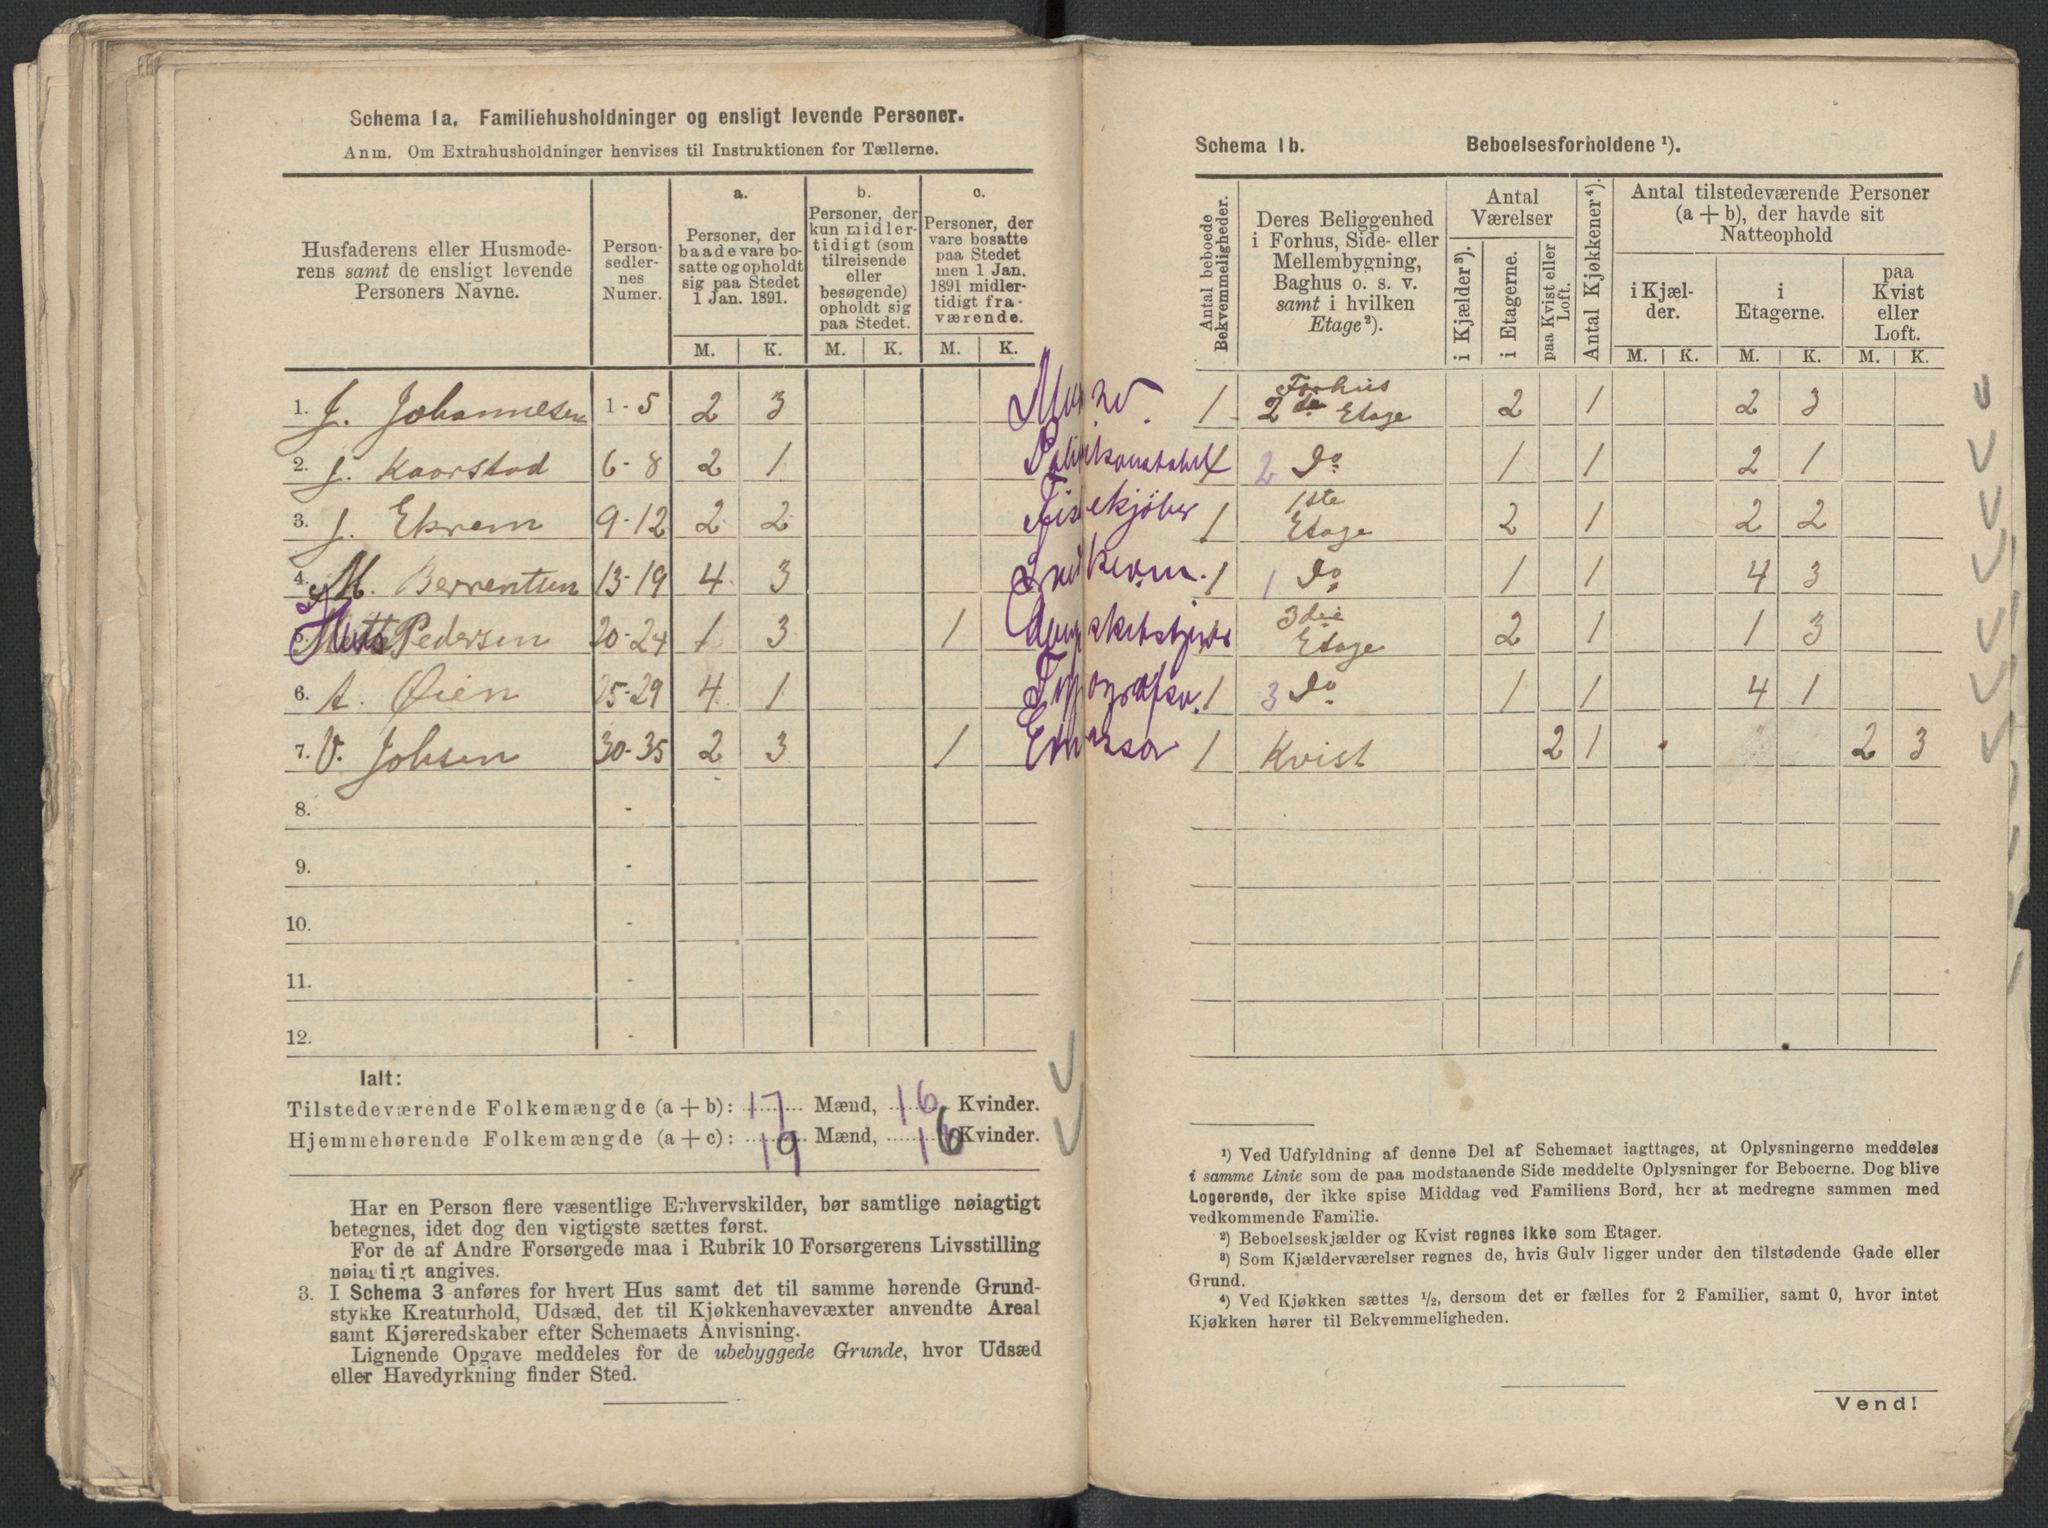 Schema 1a. Familiehusholdninger og ensligt levende Personer.
Anm. Om Extrahusholdninger henvises til Instruktionen for Tællerne.
Husfaderens eller Husmode-
rens samt de ensligt levende
Personers Navne.
Person-
sedler-
nes
Numer.
a.
Personer, der
baade vare bo-
satte og opholdt
sig paa Stedet
1 Jan. 1891.
b.
Personer, der
kun midler-
tidigt (som
tilreisende
eller
besøgende)
opholdt sig
paa Stedet.
c.
Personer, der
vare bosatte
paa Stedet
men 1 Jan.
1891 midler-
tidigt fra-
værende.
M. K. M. K. M. K.
1. J. Johannesen 1-5 2 3
2. J. Kaarstad 6-8 2 1
3. J. Ekrem 9-12 2 2
4. M. Berrentsen 13-19 4 3
5. Pedersen 20-24 1 3 1
6. A. Øien 25-29 4 1
7. V. Johsen 30-35 2 3 1
8. -
9. -
10. -
11. -
12. -
Ialt:
Tilstedeværende Folkemængde (a+b): 17 Mænd, 16 Kvinder.
Hjemmehørende Folkemængde (a+c): 19 Mænd, 16 Kvinder.
Har en Person flere væsentlige Erhvervskilder, bør samtlige nøiagtigt
betegnes, idet dog den vigtigste sættes først.
For de af Andre Forsørgede maa i Rubrik 10 Forsørgerens Livsstilling
nøiagtigt angives.
3. I Schema 3 anføres for hvert Hus samt det til samme hørende Grund-
stykke Kreaturhold, Udsæd, det til Kjøkkenhavevæxter anvendte Areal
samt Kjøreredskaber efter Schemaets Anvisning.
Lignende Opgave meddeles for de ubebyggede Grunde, hvor Udsæd
eller Havedyrkning finder Sted.
Schema 1b. Beboelsesforholdene ¹).
Antal beboede
Bekvemmeligheder.
Deres Beliggenhed
i Forhus, Side- eller
Mellembygning,
Baghus o. s. v.
samt i hvilken
Etage²).
Antal
Værelser
i Kjælder³).
i Etagerne.
paa Kvist eller
Loft.
Antal Kjøkkener⁴).
Antal tilstedeværende Personer
(a + b), der havde sit
Natteophold
i Kjæl-
der.
i
Etagerne.
paa
Kvist
eller
Loft.
M. K. M. K. M. K.
Murer. 1 Forhus
2den Etage 2 1 2 3
Politikonstabel 1 2 Do 1 1 2 1
Fiskekjøber 1 1ste
Etage 2 1 2 2
1 1 Do 1 1 4 3
3die
Etage 2 1 1 3
Typografsv. 1 3 Do 1 1 4 1
1 Kvist 2 1 2 3
¹) Ved Udfyldning af denne Del af Schemaet iagttages, at Oplysningerne meddeles
i samme Linie som de paa modstaaende Side meddelte Oplysninger for Beboerne. Dog blive
Logerende, der ikke spise Middag ved Familiens Bord, her at medregne sammen med
vedkommende Familie.
²) Beboelseskjælder og Kvist regnes ikke som Etager.
³) Som Kjælderværelser regnes de, hvis Gulv ligger under den tilstødende Gade eller
Grund.
⁴) Ved Kjøkken sættes ½, dersom det er fælles for 2 Familier, samt 0, hvor intet
Kjøkken hører til Bekvemmeligheden.
Vend!